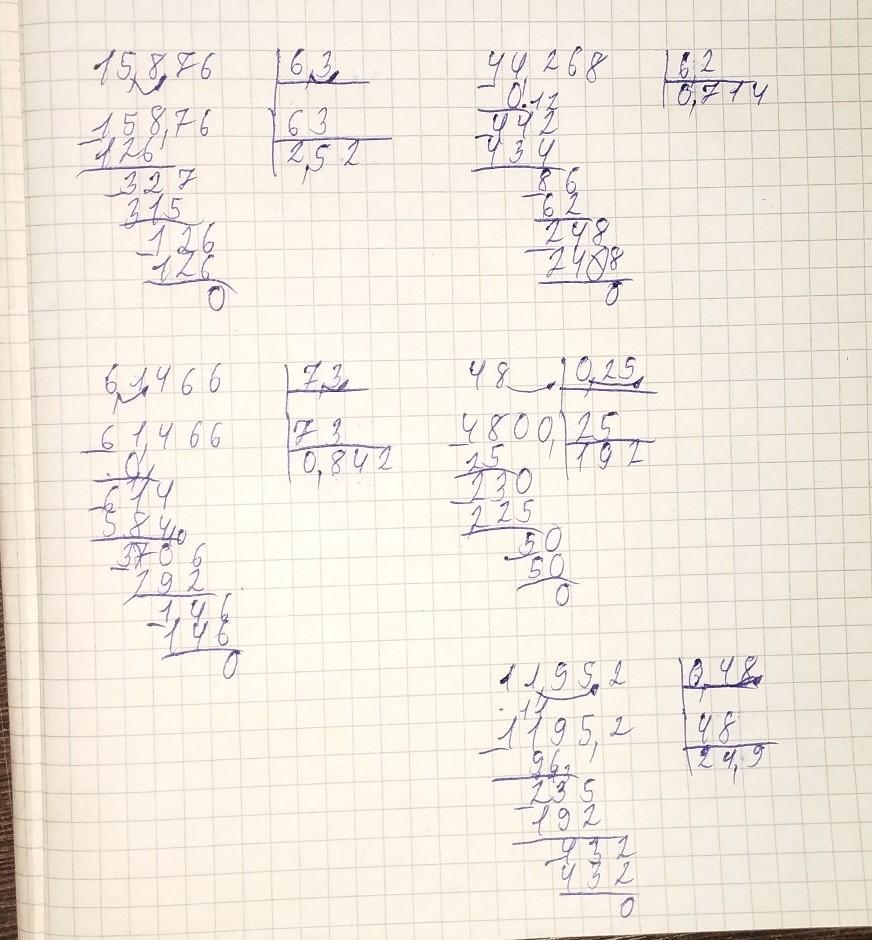 15,8,76 6,3
158,76 63
126 2,52
327
315
126
126
0
44,268 6,2
0, 0,714
442
434
86
62
248
248
0
6,1,466 7,3
61,466 73
0 0,842
614
584
306
292
146
146
0
48 0,25
4800, 25
25 192
230
225
50
50
0
11,95,2 0,48
1195,2 48
96 24,9
235
192
432
432
0